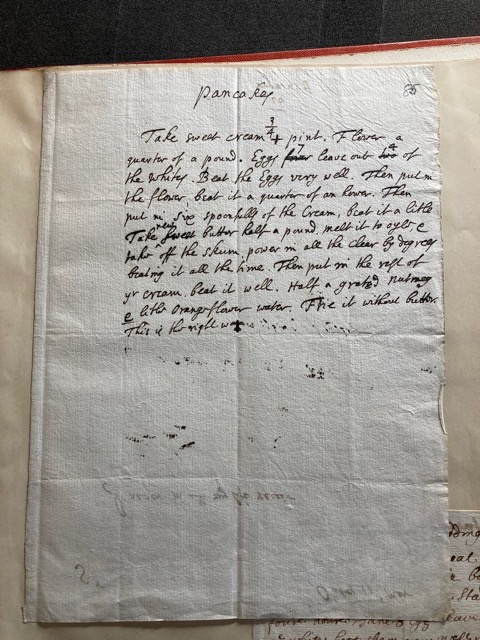 Pancakes
Take sweet cream 3/4 + pint. Flower a
quarter of a pound. Eggs four 7 leave out two 4 of
the whites Beat the Eggs very well. Then put in
the flower beat it a quarter of an hower. Then
put in six spoonfulls of the Cream, beat it a litle
Take new sweet butter half a pound melt it to oyle &
take off the skum, power in all the clear by degrees
beating it all the time. Then put in the rest of
yr cream. beat it well. Half a grated nutmeg
& litle orangeflower water. Frie it without butter.
This is the right